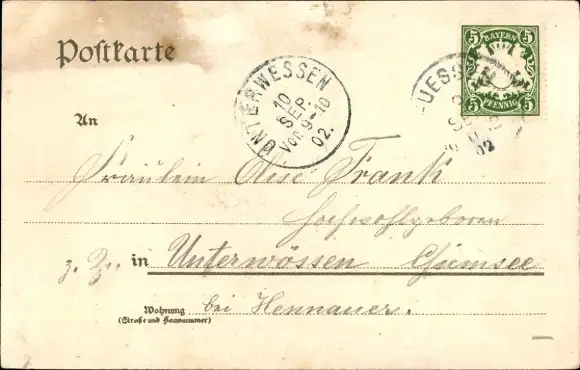 Postkarte
5 BAYERN 5
5 PFENNIG 5
UNTERWESSEN
10
SEP.
Vor. 9-10
02.
FUESSEN
02
An
Fräulein Else Frank
Hochwohlgeboren
z. Zt. in Unterwössen Chiemsee
Wohnung bei Hennauer.
(Straße und Hausnummer)